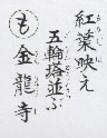 紅葉映え
五輪塔並ぶ
も 金龍寺